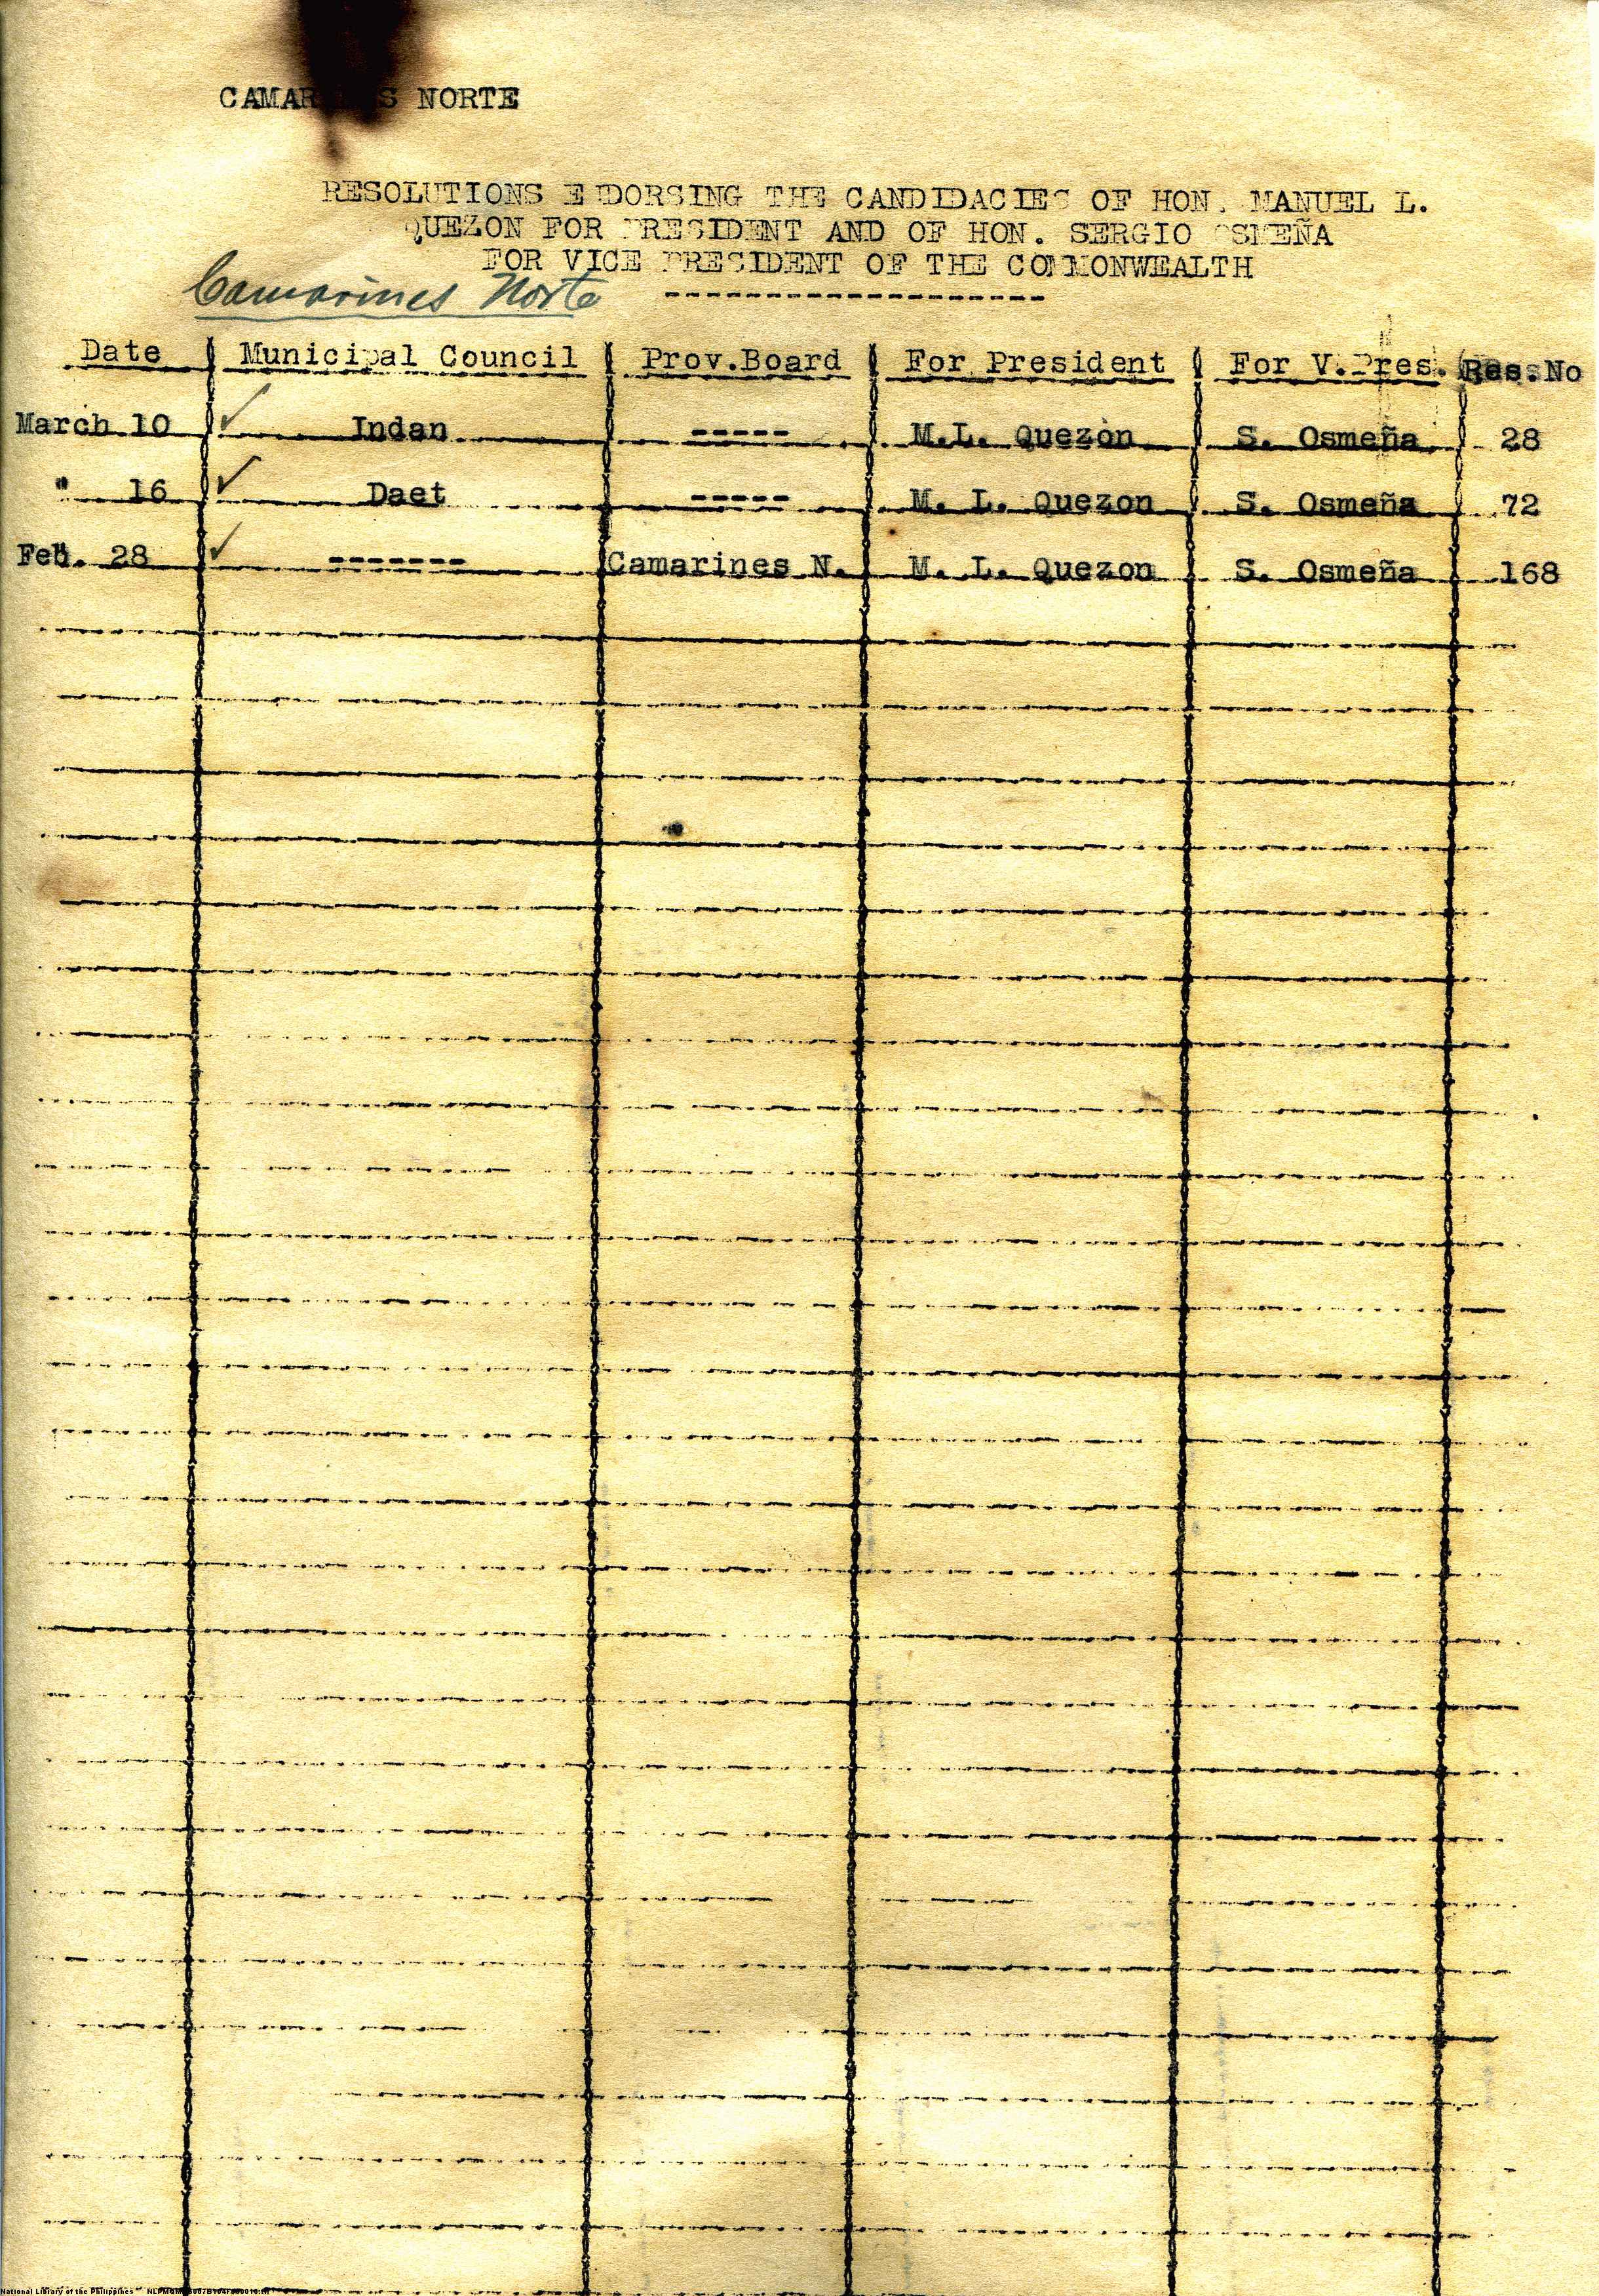 CAMAR S NORTE
RESOLUTIONS E DORSING THE CANDIDACIES OF HON. MANUEL L.
QUEZON FOR PRESIDENT AND OF HON. SERGIO OSMEÑA
FOR VICE PRESIDENT OF THE COMMONWEALTH
Camarines Norte -------------------
Date Municipal Council Prov.Board For President For V.Pres. Res.No
March 10 ✓ Indan ----- M.L. Quezon S. Osmeña 28
" 16 ✓ Daet ----- M. L. Quezon S. Osmeña 72
Feb. 28 ✓ ------- Camarines N. M. L. Quezon S. Osmeña 168
National Library of the Philippines